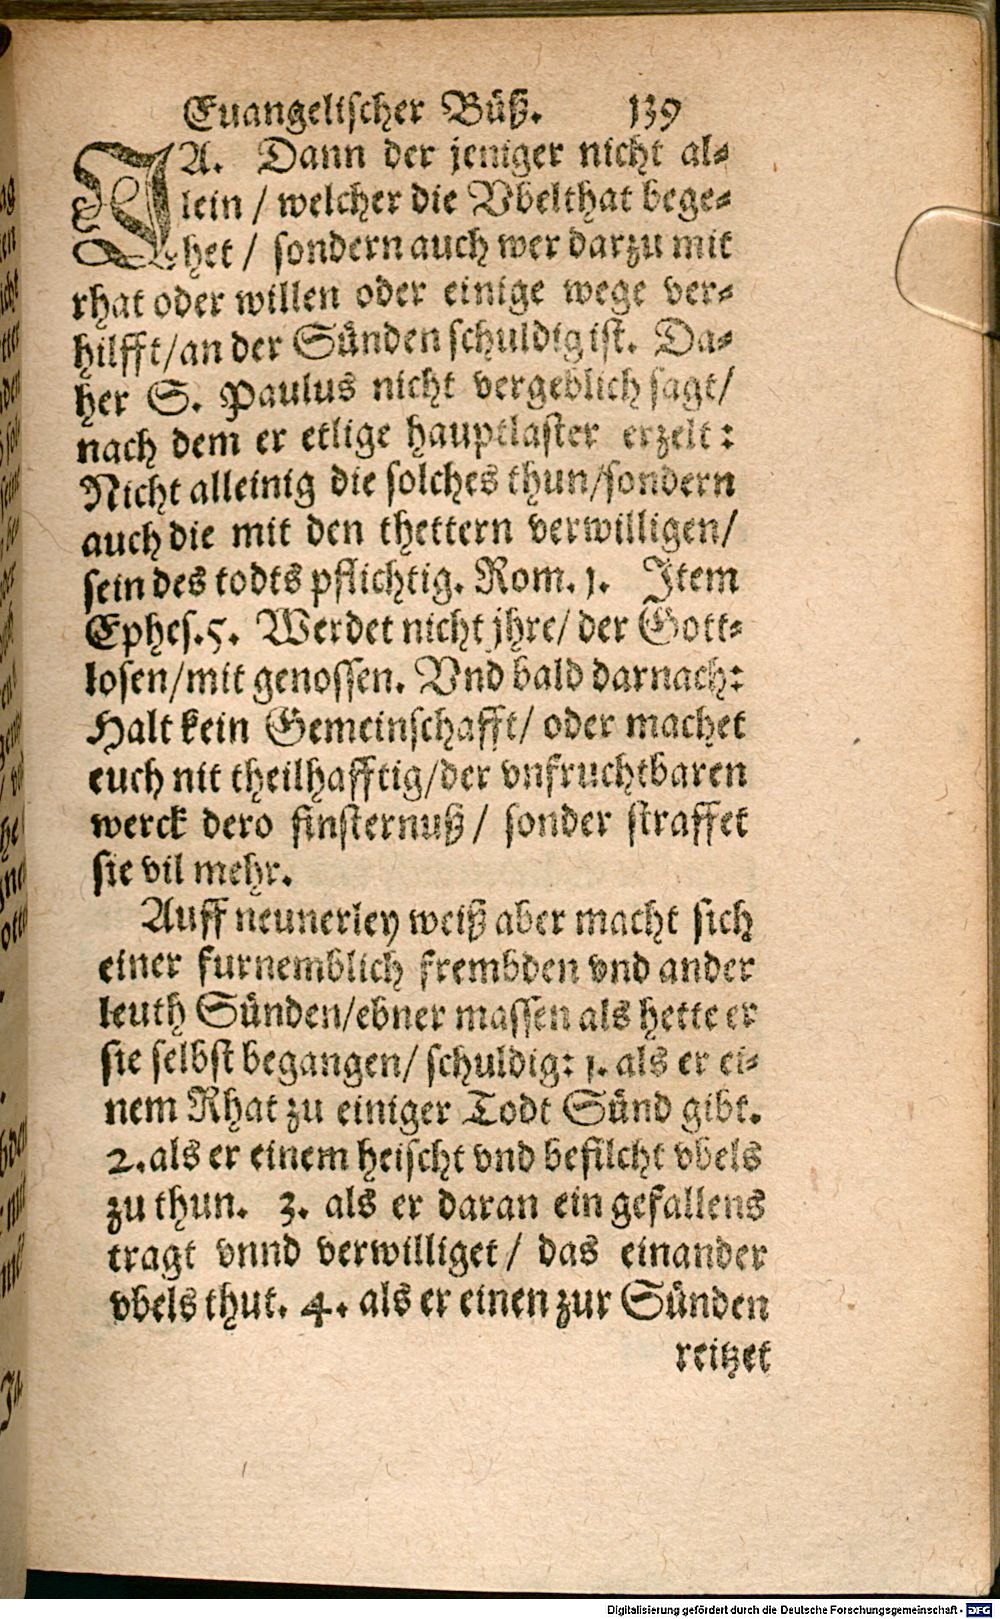 Euangelischer Büß. 139
JA. Dann der jeniger nicht al⸗
lein / welcher die Vbelthat bege⸗
het / sondern auch wer darzu mit
rhat oder willen oder einige wege ver⸗
hilfft/an der Sünden schuldig ist. Da⸗
her S. Paulus nicht vergeblich sagt/
nach dem er etlige hauptlaster erzelt:
Nicht alleinig die solches thun/sondern
auch die mit den thettern verwilligen/
sein des todts pflichtig. Rom. 1. Item
Ephes.5. Werdet nicht jhre/ der Gott⸗
losen/mit genossen. Vnd bald darnach:
Halt kein Gemeinschafft/ oder machet
euch nit theilhafftig/der vnfruchtbaren
werck dero finsternuß/ sonder straffet
sie vil mehr.
Auff neunerley weiß aber macht sich
einer furnemblich frembden vnd ander
leuth Sünden/ebner massen als hette er
sie selbst begangen/ schuldig: 1. als er ei⸗
nem Rhat zu einiger Todt Sünd gibt.
2. als er einem heischt vnd befilcht vbels
zu thun. 3. als er daran ein gefallens
tragt vnnd verwilliget/ das einander
vbels thut. 4. als er einen zur Sünden
reitzet
Digitalisierung gefördert durch die Deutsche Forschungsgemeinschaft - DFG